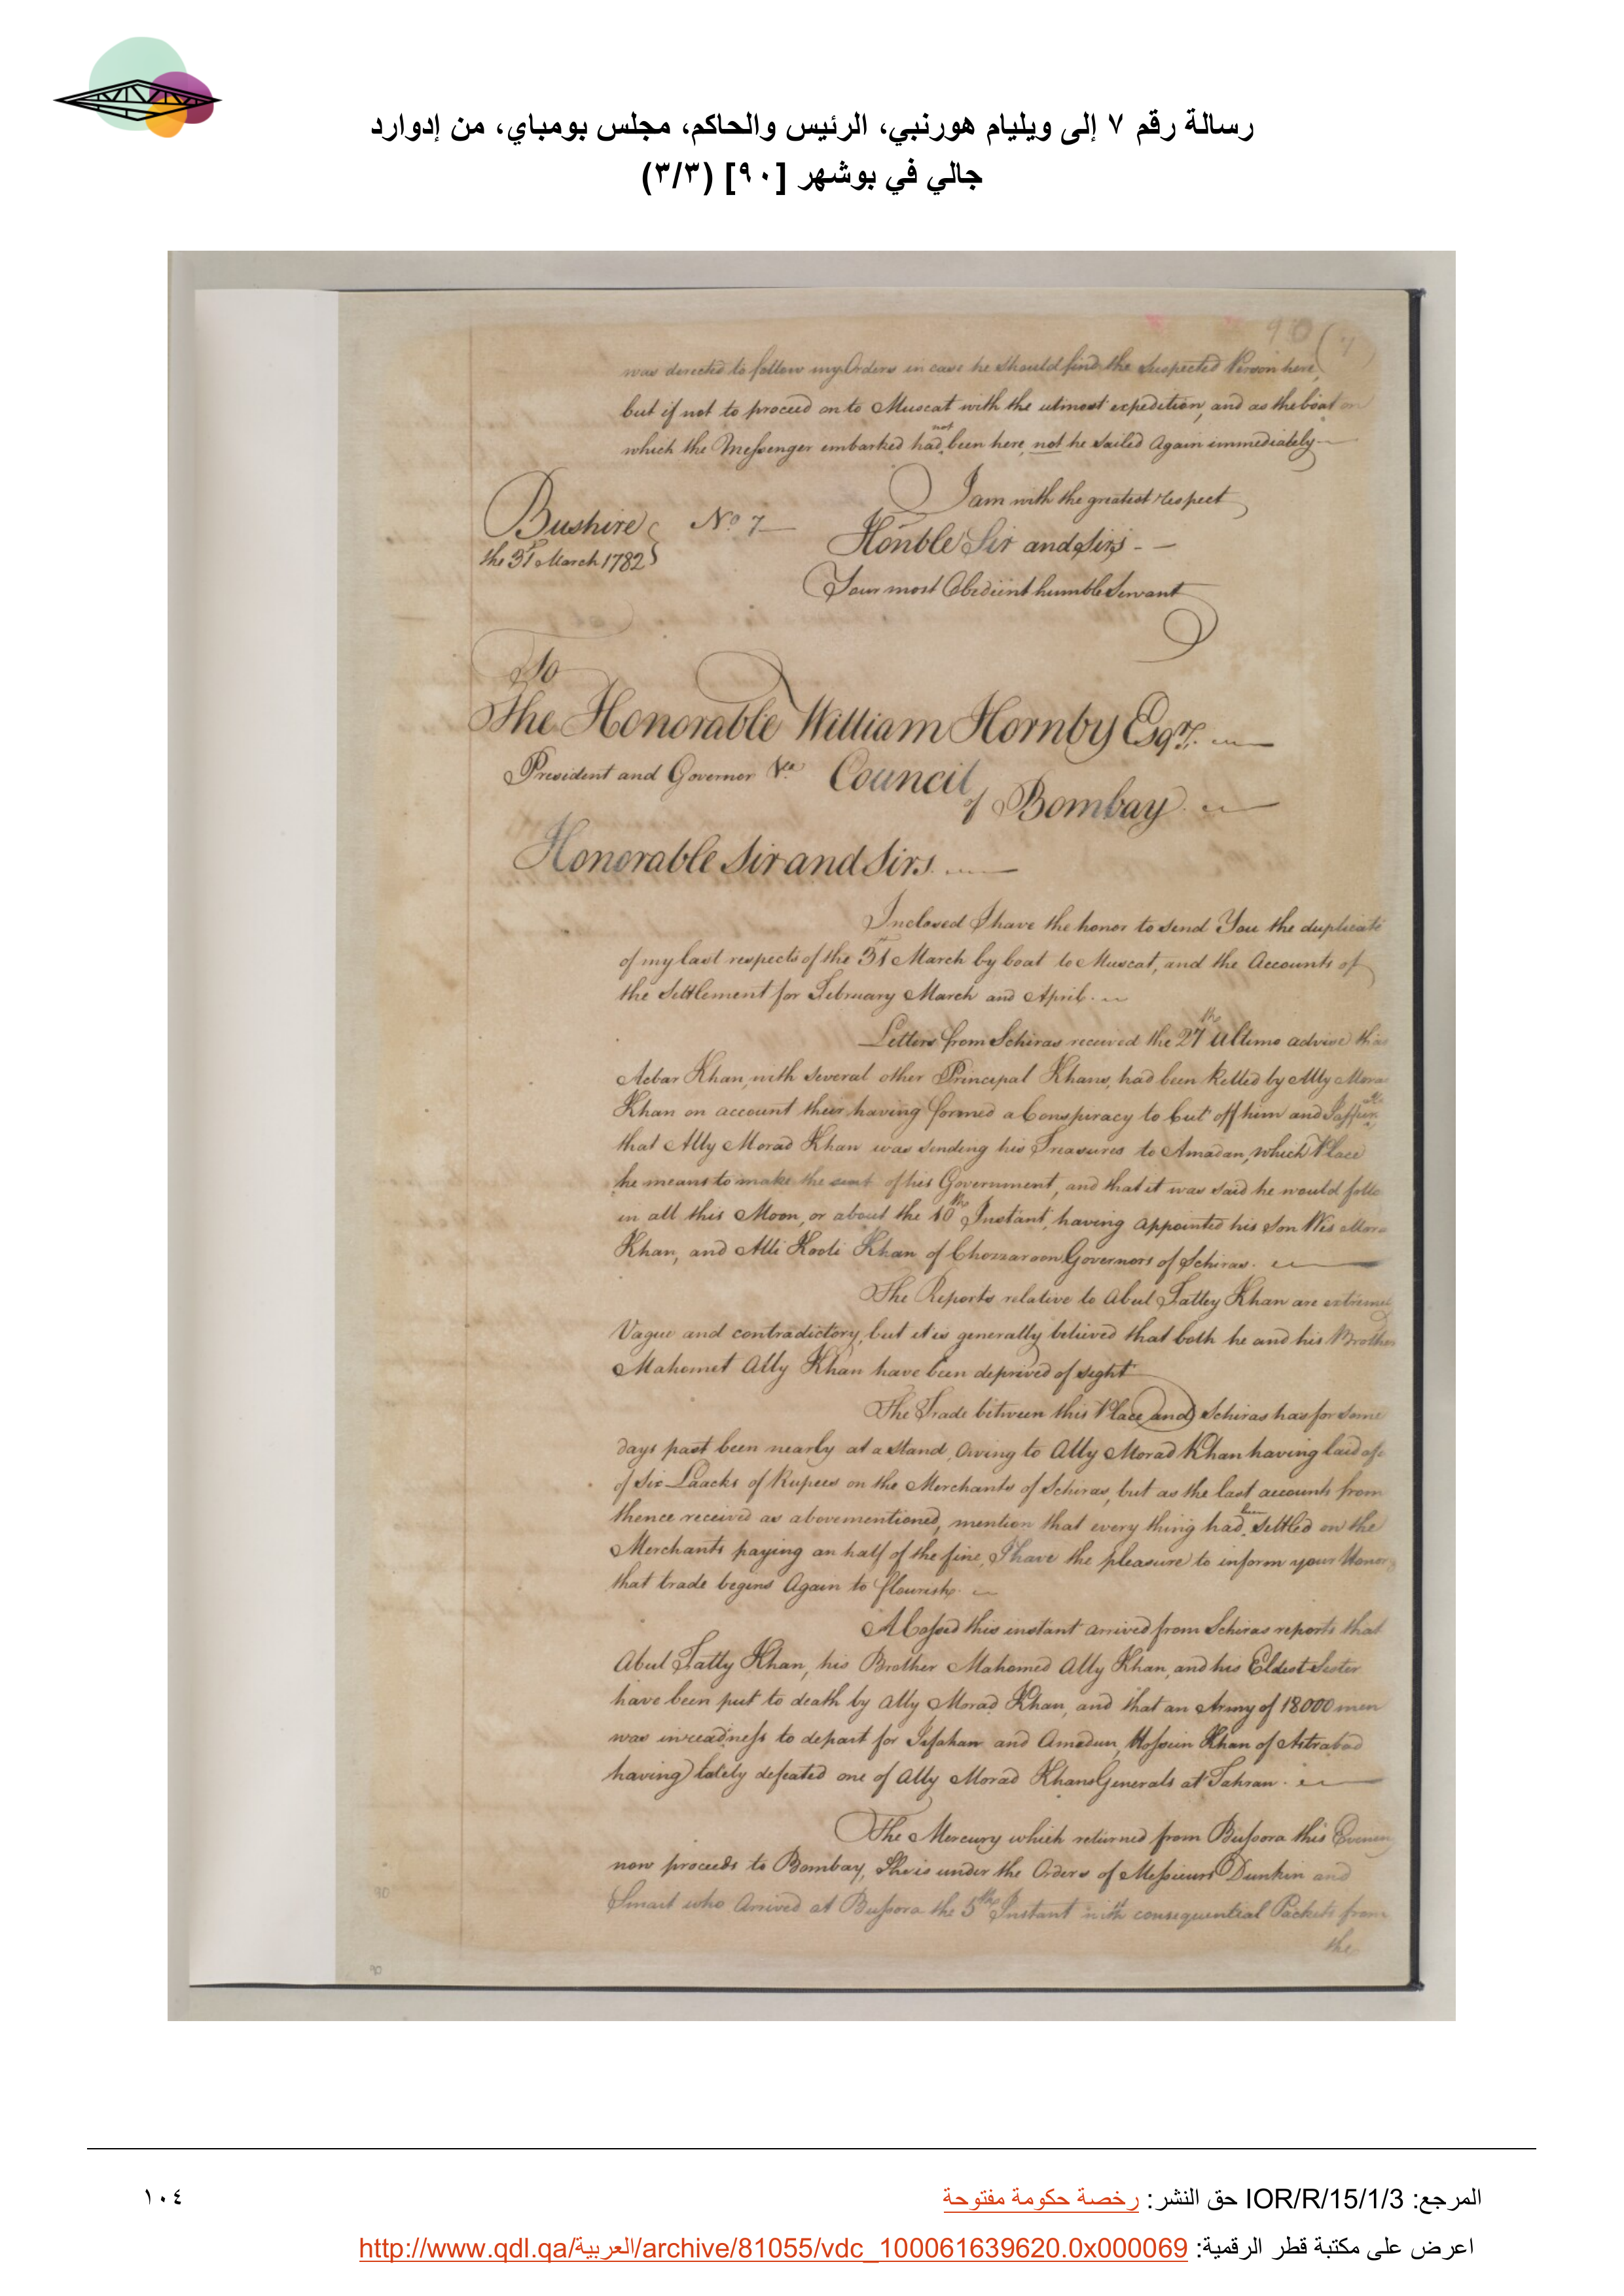 رسالة رقم ٧ إلى ويليام هورنبي، الرئيس والحاكم، مجلس بومباي، من إدوارد
جالي في بوشهر [٩٠] (٣/٣)
90 (7
was directed to follow my Orders in case he should find the Suspected Person here,
but if not to proceed on to Muscat with the utmost expedition, and as the boat on
which the Messenger embarked had not been here, not he Sailed Again immediately
I am with the greatest respect
Bushire No 7
Honble Sir and Sirs
the 31st March 1782
Your most Obedient humble Servant
To
The Honorable William Hornby Esqr.
President and Governor &ca Council
of Bombay
Honorable Sir and Sirs
Inclosed I have the honor to send You the duplicate
of my last respects of the 31st March by boat to Muscat, and the Accounts of
the Settlement for February March and April.
Letters from Schiras received the 27th Ultimo advise that
Acbar Khan, with Several other Principal Khans, had been killed by Ally Mora
Khan on account their having formed a Conspiracy to Cut off him and
that Ally Morad Khan was sending his Treasures to Amadan, which Place
he means to make the seat of his Government, and that it was said he would follo
in all this Moon, or about the 10th Instant, having appointed his Son Wis Mora
Khan, and Alli Kooli Khan of Chozzaroon Governors of Schiras.
The Reports relative to Abul Fattey Khan are extremely
Vague and contradictory, but it is generally believed that both he and his Brother
Mahomet Ally Khan have been deprived of sight
The Trade between this Place and Schiras has for some
days past been nearly at a stand, Owing to Ally Morad Khan having laid a f
of Six Laacks of Rupees on the Merchants of Schiras, but as the last accounts from
thence received as abovementioned, mention that every thing had been Settled on the
Merchants paying an half of the fine, I have the pleasure to inform your Honor
that trade begins Again to flourish.
A Cossid this instant arrived from Schiras reports that
Abul Fatty Khan, his Brother Mahomed Ally Khan, and his Eldest Sister
have been put to death by Ally Morad Khan, and that an Army of 18000 men
was in readiness to depart for Isfahan and Amadun, Hossein Khan of Astrabad
having lately defeated one of Ally Morad Khans Generals at Tahran.
The Mercury which returned from Bussora this Evening
now proceeds to Bombay, She is under the Orders of Messieurs Dunkin and
Smart who Arrived at Bussora the 5th Instant with consequential Packets from
the
90
90
المرجع: IOR/R/15/1/3 حق النشر: رخصة حكومة مفتوحة
١٠٤
اعرض على مكتبة قطر الرقمية: http://www.qdl.qa/العربية/archive/81055/vdc_100061639620.0x000069